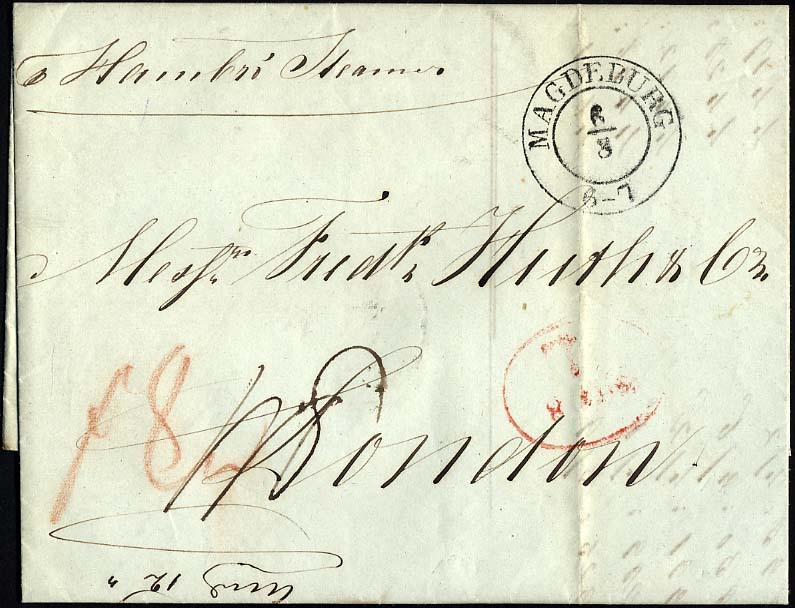 Hambro' Steamer
MAGDEBURG
6/8
6-7
Messrs Fredk Huth & Co.
London